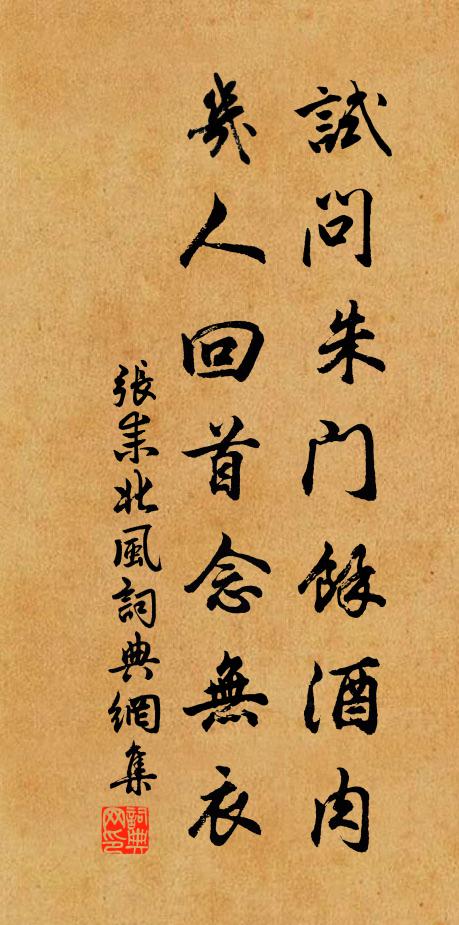 試問朱門餘酒肉
幾人回首念無衣
張耒北風詞典網集
詞典
网印